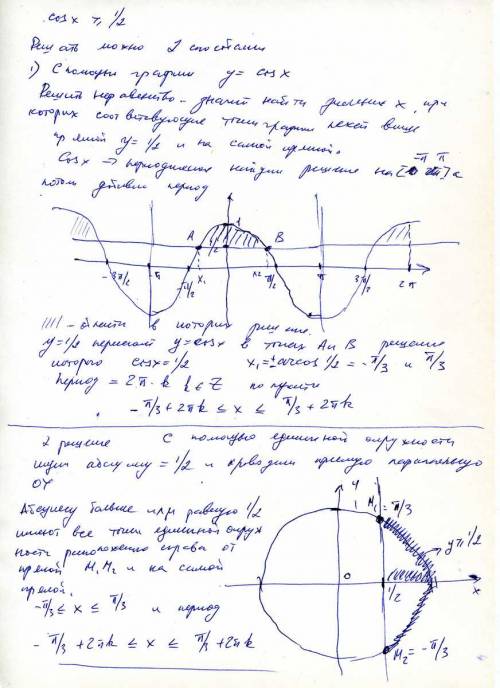 cos x ≥ 1/2
Решать можно 2 способами
1) С помощью графика y = cos x
Решить неравенство - значит найти значения x, при
которых соответствующие точки графика лежат выше
прямой y = 1/2 и на самой прямой.
Cos x → периодическая найдем решение на [-π π] а
потом добавим период
1
A 1/2 B
-3π/2 -π -π/2 x1 x2 π/2 π 3π/2 2π
//// - области в которых решение.
y=1/2 пересекает y=cos x в точках A и B решение
которого cos x=1/2 x1=±arccos 1/2 = -π/3 и π/3
Период = 2π·k k∈Z
-π/3+2πk ≤ x ≤ π/3+2πk
2 решение С помощью единичной окружности
ищем абсциссу = 1/2 и проводим прямую параллельную
OY
Абсциссу больше или равную 1/2
имеют все точки единичной окруж
ности расположенные справа от
прямой M1M2 и на самой
прямой.
-π/3 ≤ x ≤ π/3 и период
-π/3+2πk ≤ x ≤ π/3+2πk
y
1
M1 = π/3
0 1/2 x
M2 = -π/3